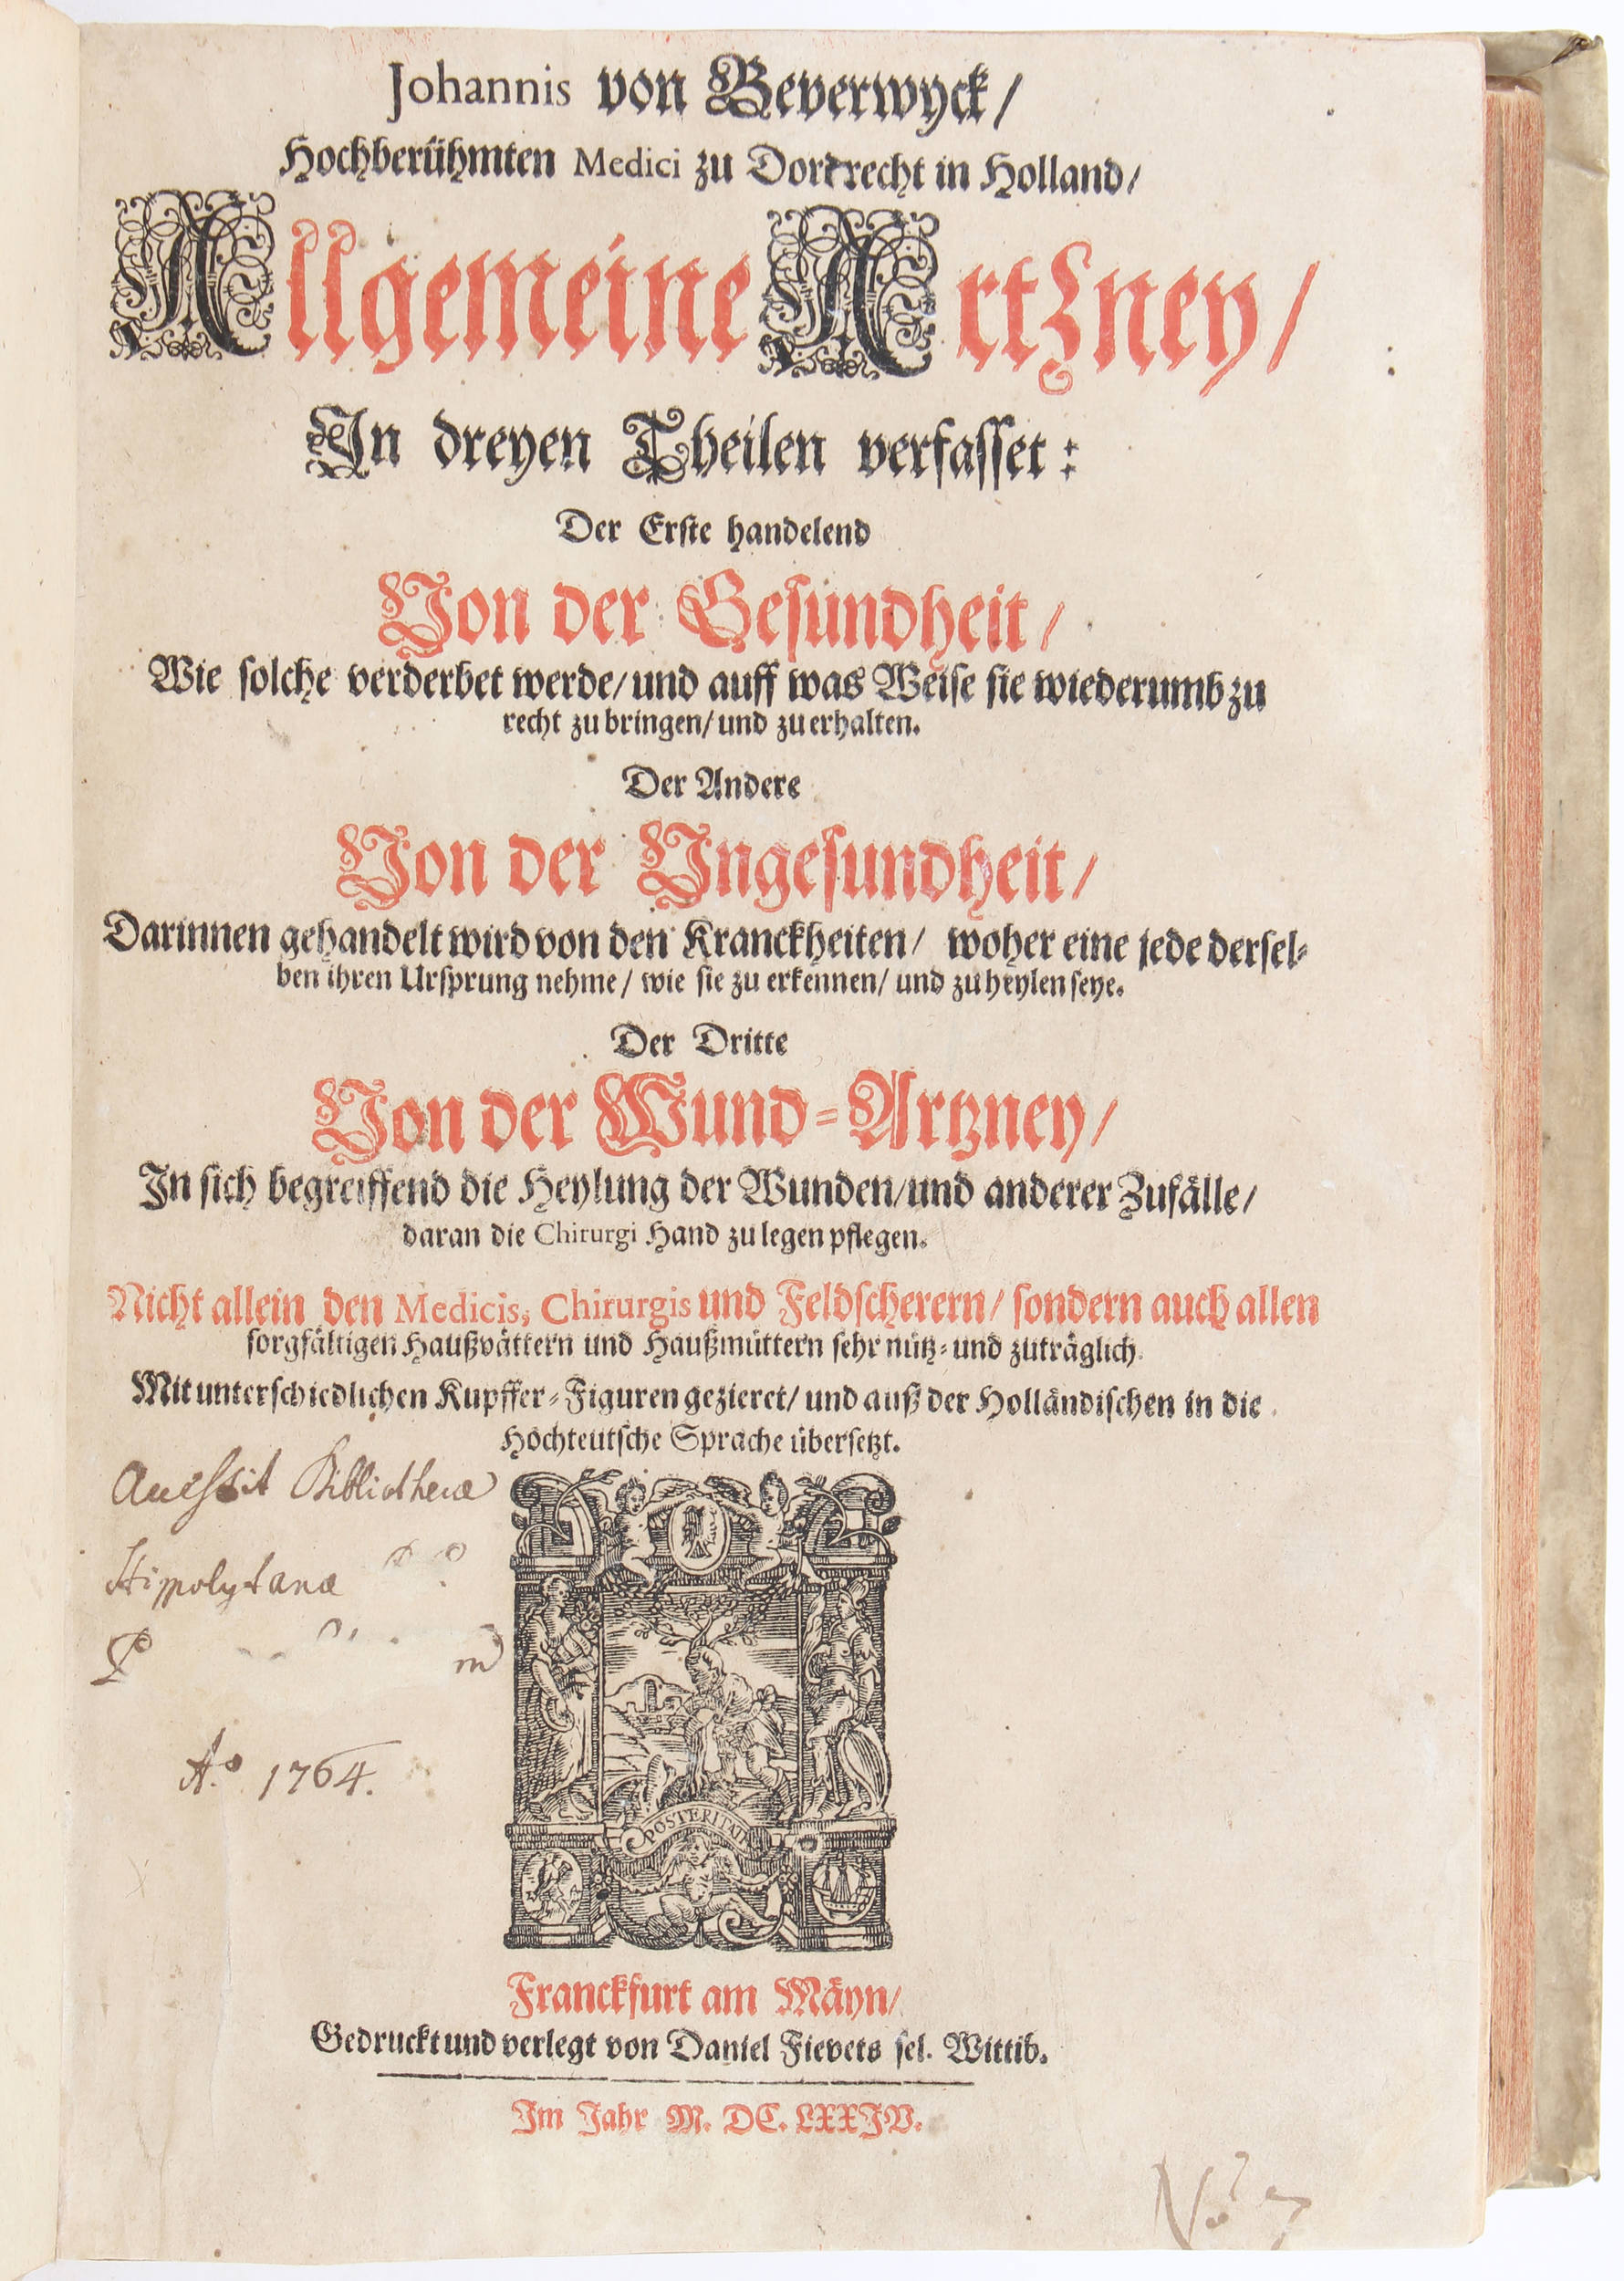 Johannis von Beverwyck/
Hochberühmten Medici zu Dordrecht in Holland/
Allgemeine Artzney/
In dreyen Theilen verfasset:
Der Erste handelend
Von der Gesundheit/
Wie solche verderbet werde/ und auff was Weise sie wiederumb zu
recht zu bringen/ und zu erhalten.
Der Andere
Von der Ungesundheit/
Darinnen gehandelt wird von den Kranckheiten/ woher eine jede dersel-
ben ihren Ursprung nehme/ wie sie zu erkennen/ und zu heylen seye.
Der Dritte
Von der Wund-Artzney/
In sich begreiffend die Heylung der Wunden/ und anderer Zufälle/
daran die Chirurgi Hand zu legen pflegen.
Nicht allein den Medicis, Chirurgis und Feldscherern/ sondern auch allen
sorgfältigen Haußvättern und Haußmüttern sehr nütz- und zuträglich.
Mit unterschiedlichen Kupffer-Figuren gezieret/ und auß der Holländischen in die
Hochteutsche Sprache übersetzt.
Bibliothecæ
Hippolytanæ
Aº. 1764.
POSTERITATI
Franckfurt am Mäyn/
Gedruckt und verlegt von Daniel Fievets sel. Wittib.
Im Jahr M. DC. LXXIV.